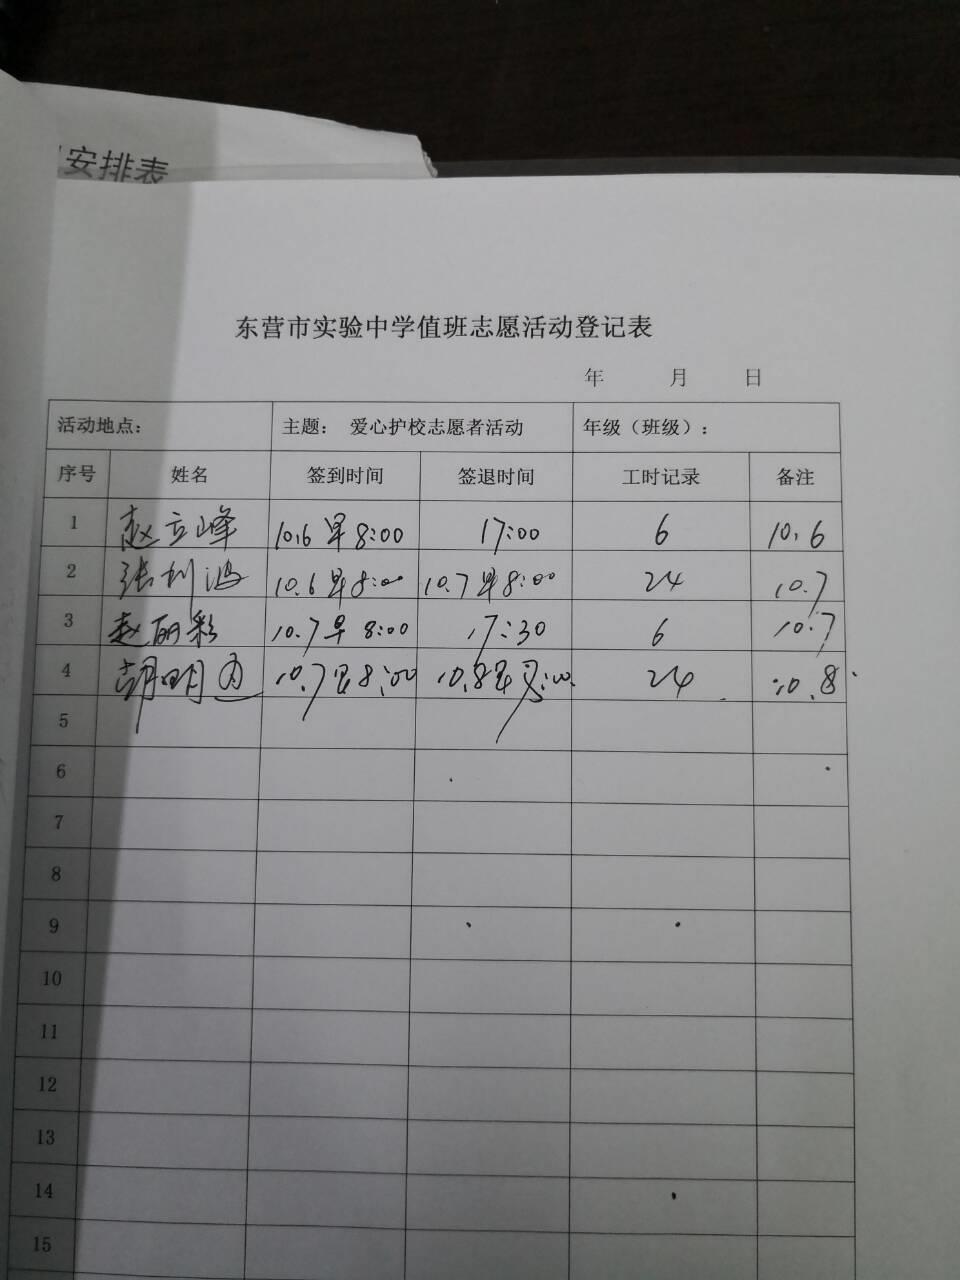 安排表
东营市实验中学值班志愿活动登记表
年 月 日
活动地点： 主题： 爱心护校志愿者活动 年级（班级）：
序号 姓名 签到时间 签退时间 工时记录 备注
1 赵立峰 10.6 早 8:00 17:00 6 10.6
2 张利波 10.6 早 8:00 10.7 早 8:00 24 10.7
3 赵丽彩 10.7 早 8:00 17:30 6 10.7
4 胡明 10.7 早 8:00 10.8 早 24 10.8
5
6
7
8
9
10
11
12
13
14
15